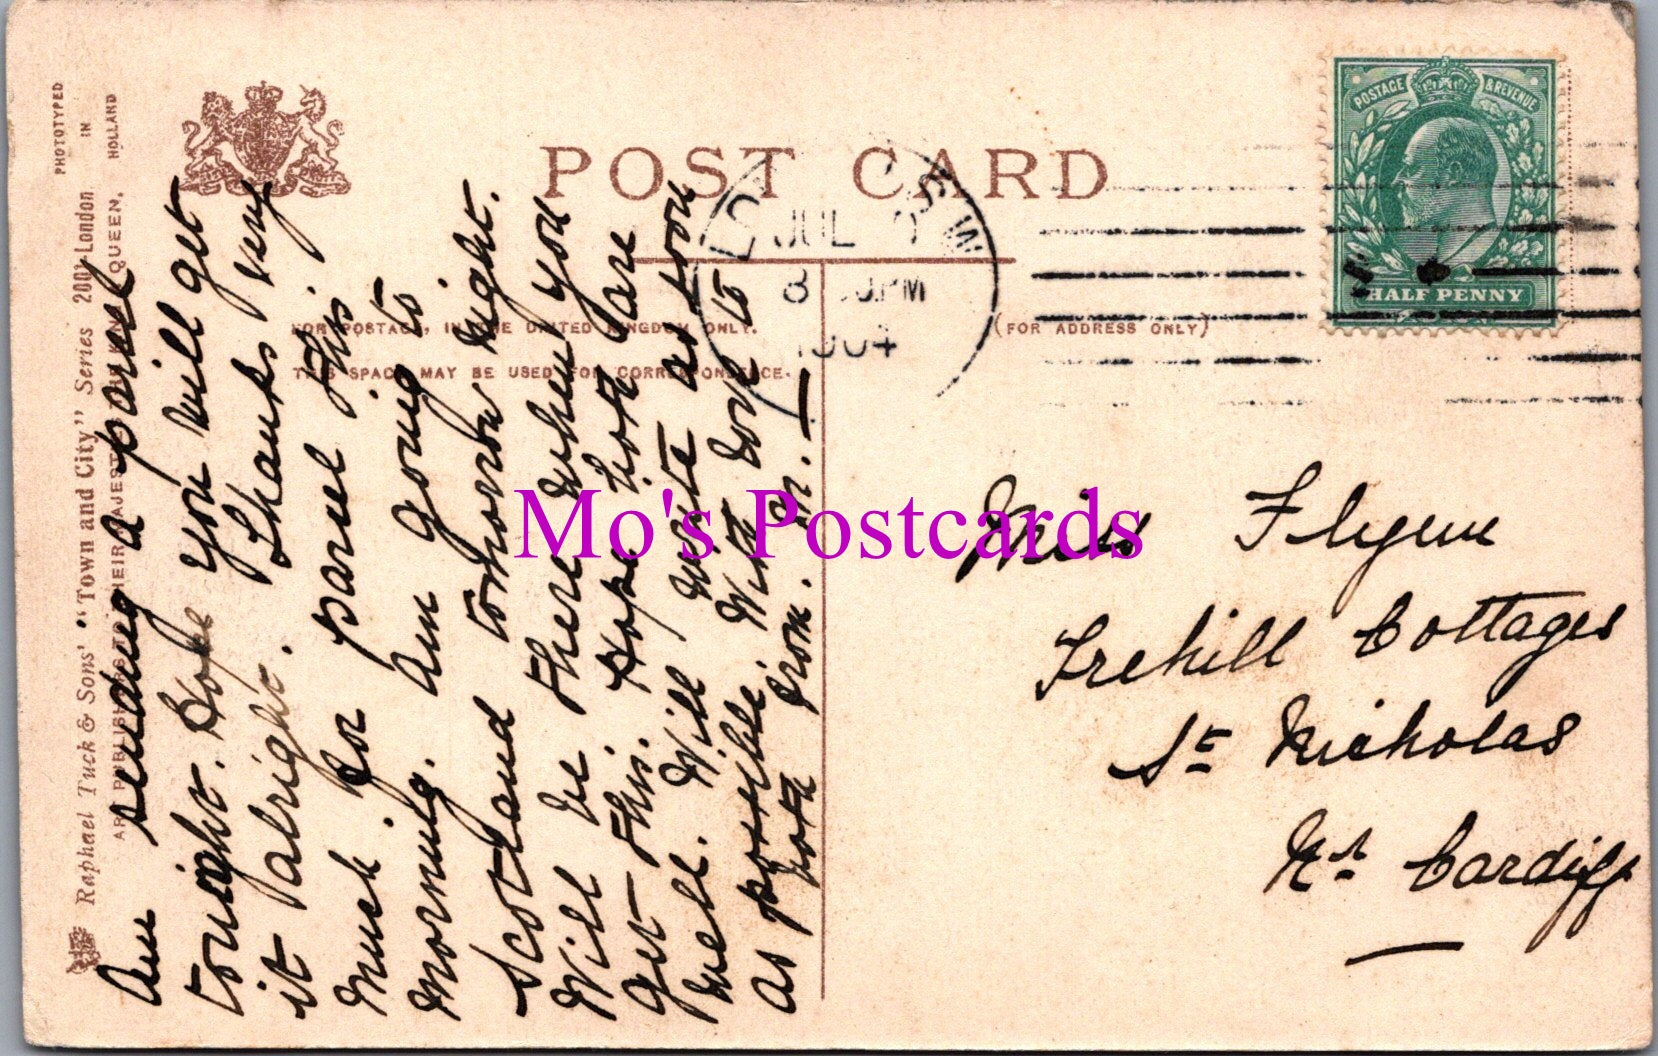 POST CARD
FOR POSTAGE, IN THE UNITED KINGDOM ONLY.
THIS SPACE MAY BE USED FOR CORRESPONDENCE.
(FOR ADDRESS ONLY)
POSTAGE & REVENUE
HALF PENNY
LONDON S.W
JUL
PM
1904
PHOTOTYPED IN HOLLAND
Raphael Tuck & Sons' "Town and City" Series 2001 London
ART PUBLISHERS TO THEIR MAJESTIES THE KING AND QUEEN.
Am sending a parcel
tonight. Hope you will get
it alright. Thanks very
much for parcel this
morning. Am going to
Scotland tomorrow night.
Will be there when you
get this. Hope both are
well. Will write as soon
as possible. With love to
both from. M.
Miss Flynn
Trehill Cottages
St Nicholas
Nr Cardiff
Mo's Postcards